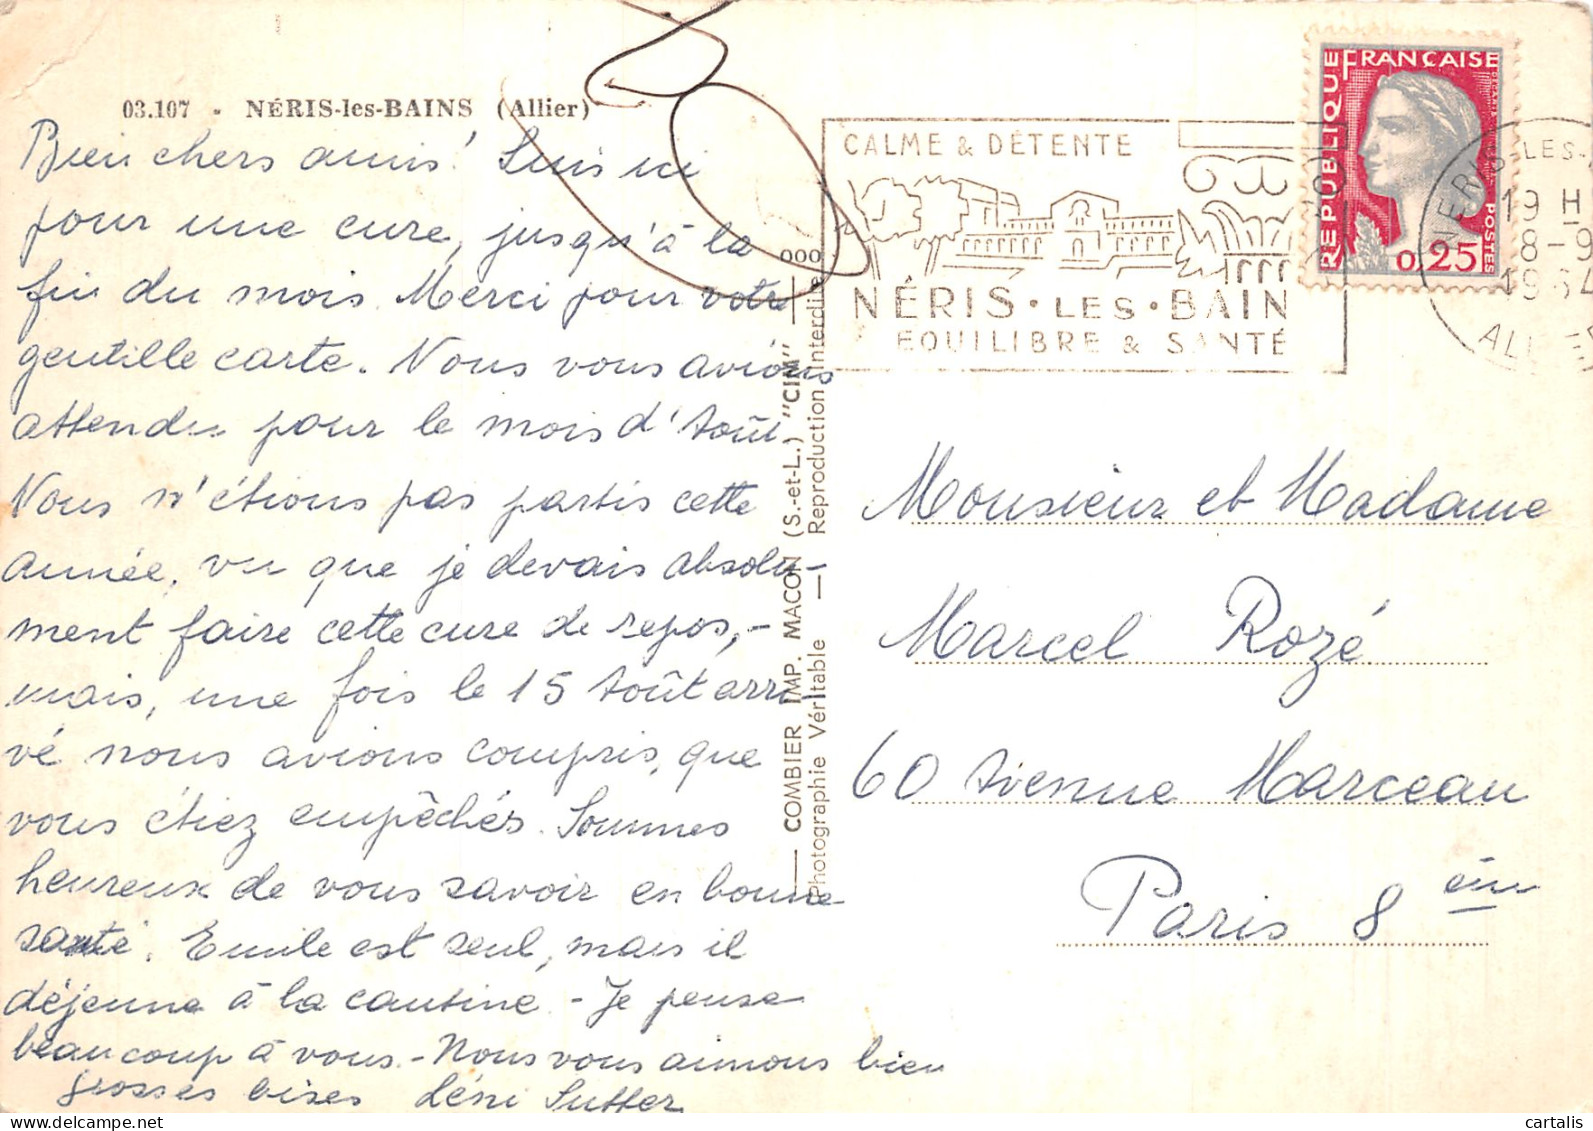 03.107 - NÉRIS-les-BAINS (Allier)
Bien chers amis! Suis ici
pour une cure, jusqu'à la
fin du mois. Merci pour votre
gentille carte. Nous vous avions
attendu pour le mois d'Août.
Nous n'étions pas partis cette
année, vu que je devais absolu-
ment faire cette cure de repos, -
mais, une fois le 15 Août arri-
vé nous avions compris, que
vous étiez empêchés. Sommes
heureux de vous savoir en bonne
santé. Emile est seul, mais il
déjeune à la cantine - Je pense
beaucoup à vous. - Nous vous aimons bien
grosses bises Léni Sutter
COMBIER IMP. MACON (S.-et-L.) "CIM"
Photographie Véritable — Reproduction interdite
000
CALME & DÉTENTE
NÉRIS·LES·BAIN
EQUILIBRE & SANTÉ
REPUBLIQUE FRANÇAISE
POSTES
DECARIS
0,25
NERIS-LES-
19 H
8-9
1964
Monsieur et Madame
Marcel Rozé
60 Avenue Marceau
Paris 8 ème
cartalis
www.delcampe.net